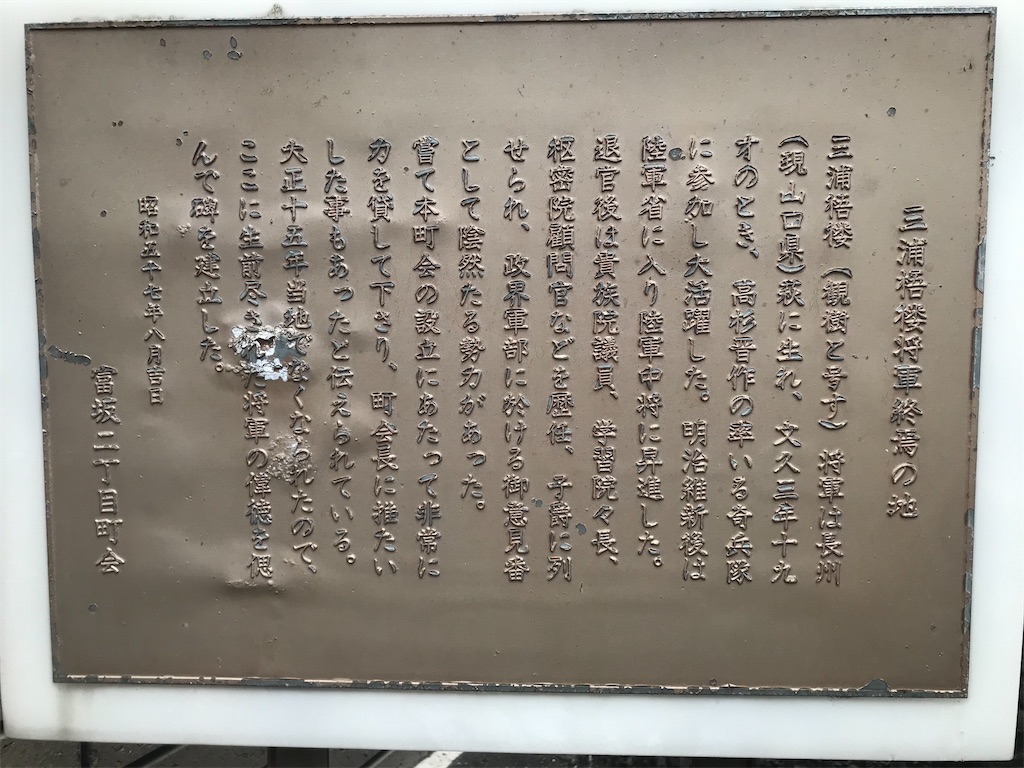 三浦梧楼将軍終焉の地
三浦梧楼(観樹と号す)将軍は長州
(現山口県)萩に生れ、文久三年十九
才のとき、高杉晋作の率いる奇兵隊
に参加し大活躍した。明治維新後は
陸軍省に入り陸軍中将に昇進した。
退官後は貴族院議員、学習院々長、
枢密院顧問官などを歴任、子爵に列
せられ、政界軍部に於ける御意見番
として陰然たる勢力があった。
嘗て本町会の設立にあたって非常に
力を貸して下さり、町会長に推たい
した事もあったと伝えられている。
大正十五年当地でなくなられたので、
ここに生前尽された将軍の偉徳を偲
んで碑を建立した。
昭和五十七年八月吉日
富坂二丁目町会